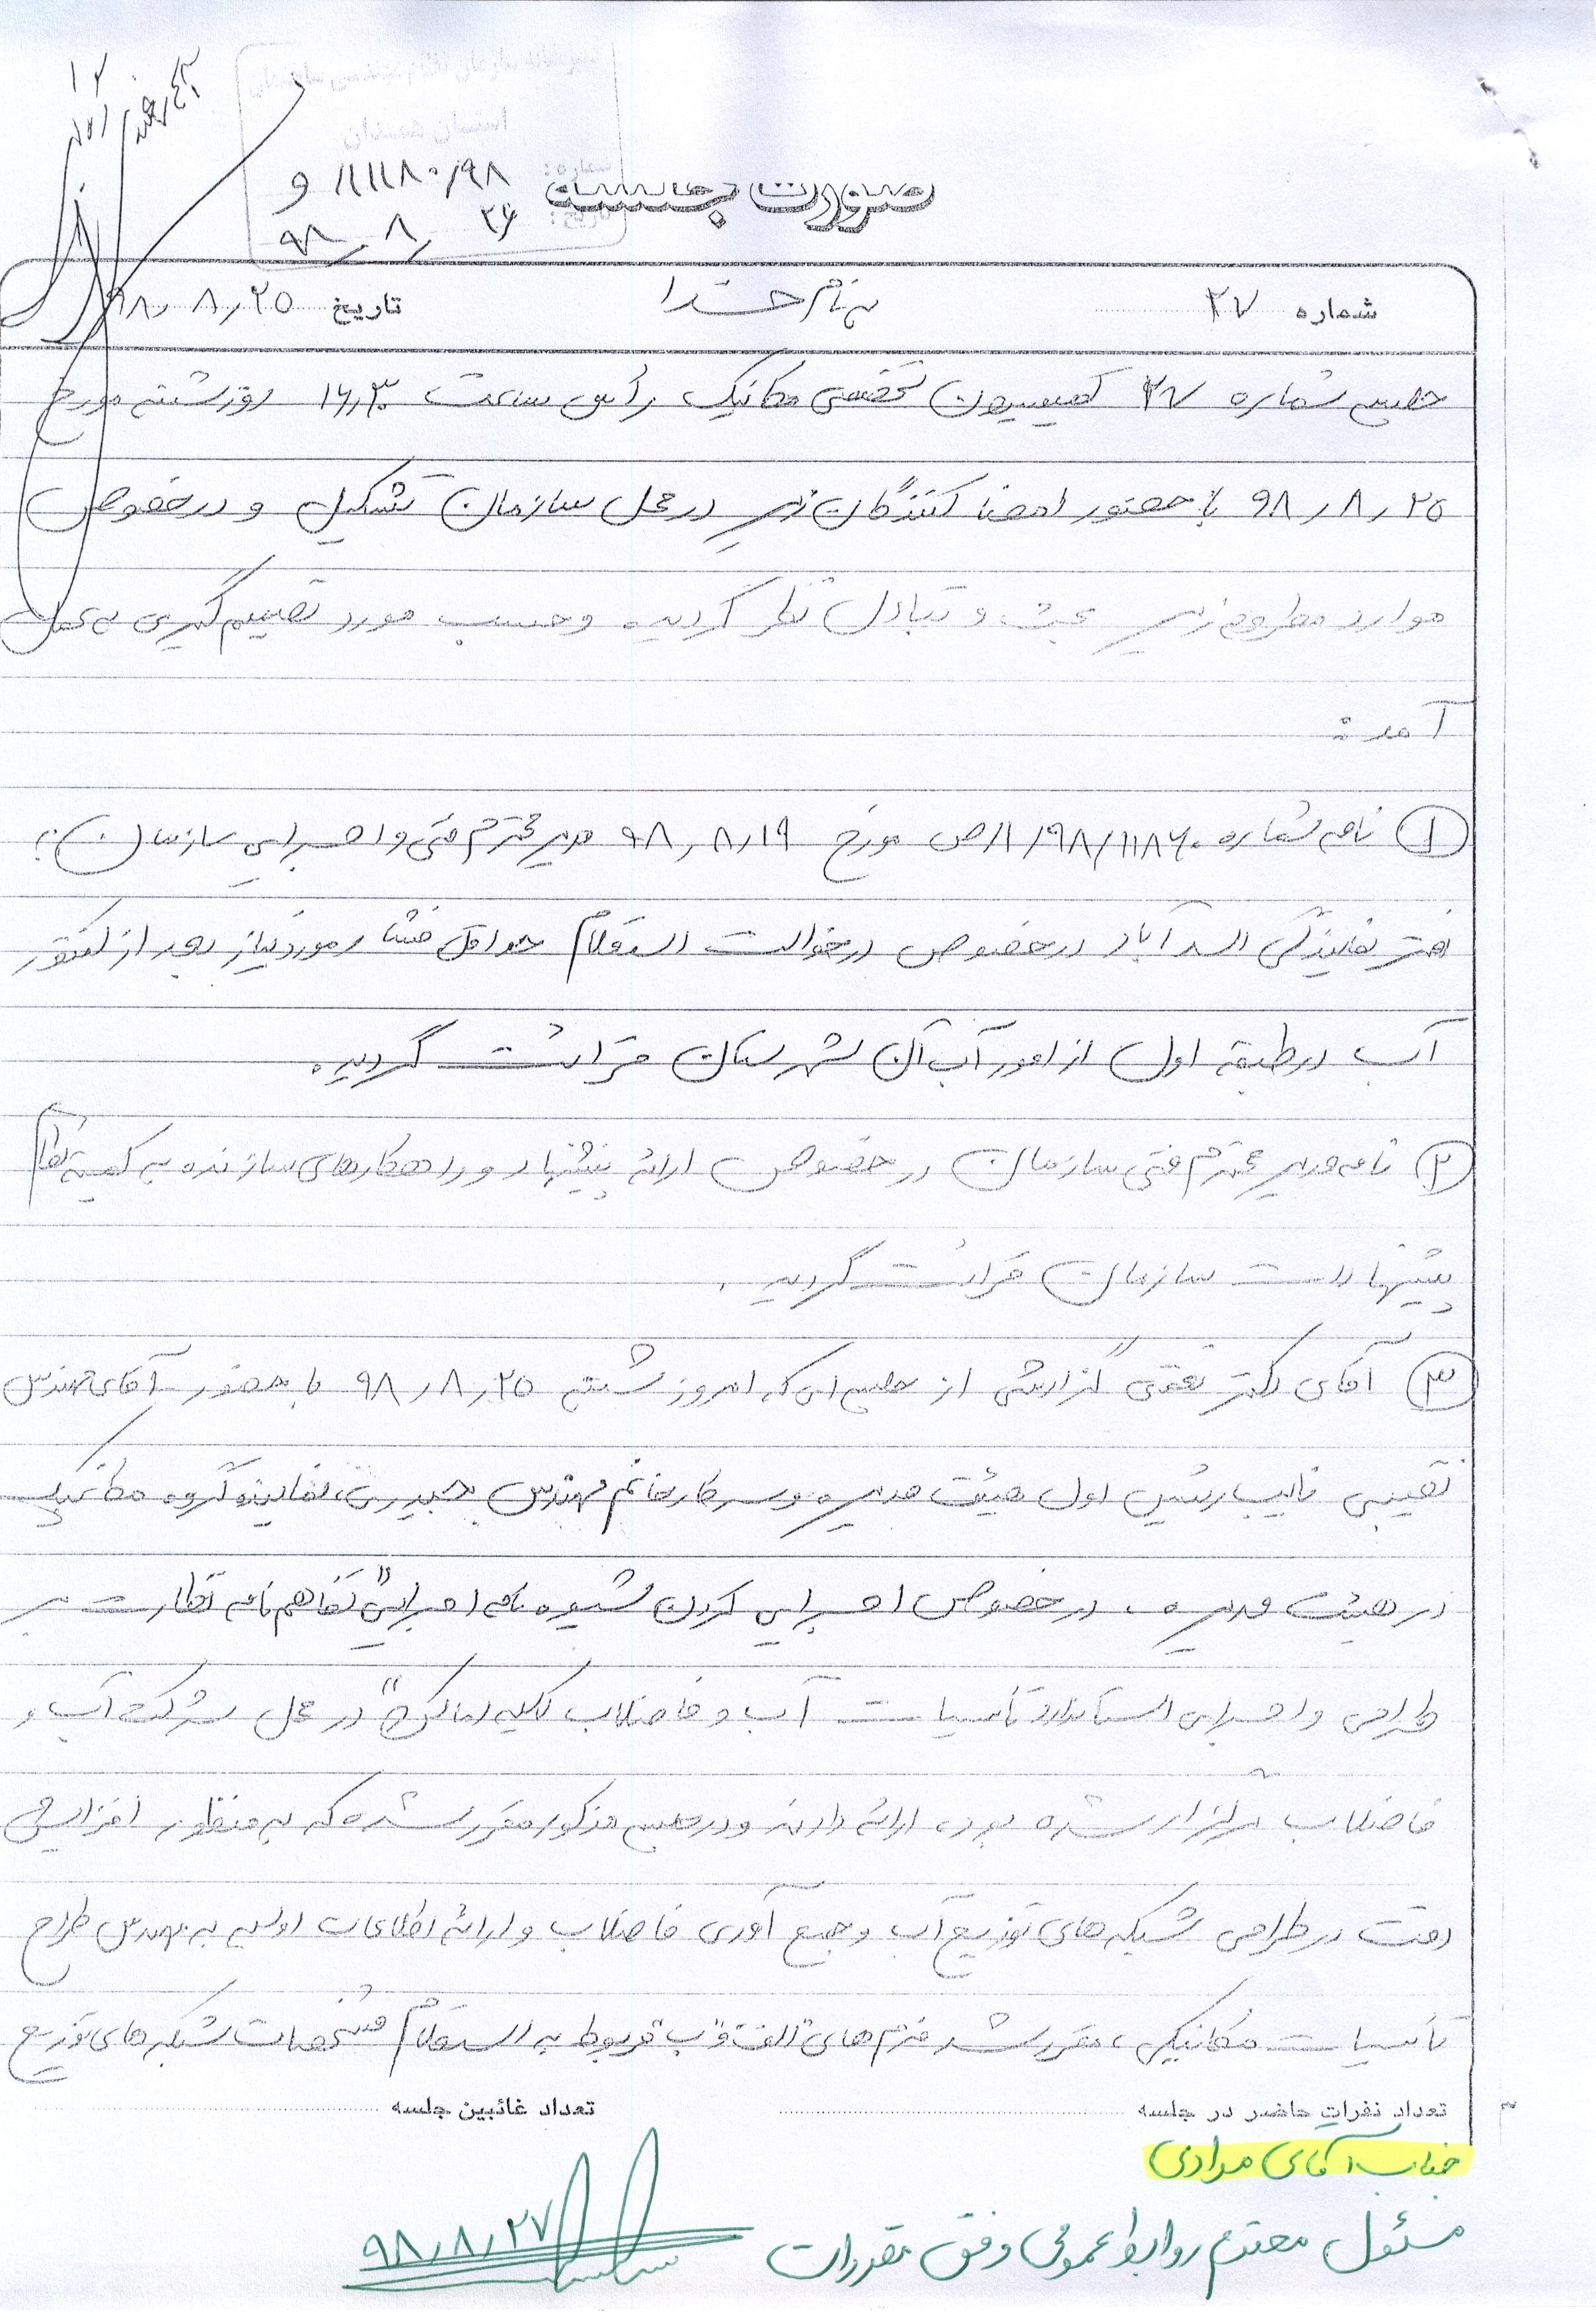 دبیرخانه سازمان نظام مهندسی ساختمان
استان همدان
شماره: ۹۸/۱۱۱۸۸۰ و
تاریخ: ۹۸/۸/۲۶
صورت جلسه
شماره ۳۷ بنام خدا تاریخ ۹۸/۸/۲۵
جلسه شماره ۳۷ کمیسیون تخصصی مکانیک رأس ساعت ۱۶/۳۰ روز شنبه مورخ
۹۸/۸/۲۵ با حضور امضا کنندگان زیر در محل سازمان تشکیل و در خصوص
موارد مطروحه زیر بحث و تبادل نظر گردید و حسب مورد تصمیم گیری به عمل
آمد:
① نامه شماره ۱۱۸۶۰/۹۸/۱/ص مورخ ۹۸/۸/۱۹ مدیر محترم فنی و اجرایی سازمان؛
دفتر نمایندگی اسدآباد در خصوص درخواست استعلام حداقل فشار مورد نیاز بعد از کنتور
آب در طبقه اول از امور آب آن شهرستان قرائت گردید.
② نامه مدیر محترم فنی سازمان در خصوص ارائه پیشنهاد و راهکارهای سازنده به کمیته نظام
پیشنهادات سازمان قرائت گردید.
③ آقای دکتر نعمتی گزارشی از جلسه ای که امروز شنبه ۹۸/۸/۲۵ با حضور آقای مهندس
نقیبی نایب رئیس اول هیئت مدیره و سرکار خانم مهندس حیدری، نماینده گروه مکانیک
در هیئت مدیره، در خصوص اجرایی کردن شیوه نامه اجرایی "تفاهم نامه نظارت بر
طراحی و اجرای استاندارد تأسیسات آب و فاضلاب کلیه اماکن" در محل شرکت آب و
فاضلاب برگزار شده بود، ارائه دادند و در جلسه مذکور مقرر شده که به منظور افزایش
دقت در طراحی شبکه های توزیع آب و جمع آوری فاضلاب و ارائه اطلاعات اولیه به مهندس طراح
تأسیسات مکانیکی، مقرر شد فرم های "الف" و "ب" مربوط به استعلام مشخصات شبکه های توزیع
تعداد نفرات حاضر در جلسه تعداد غائبین جلسه
جناب آقای مرادی
مسئول محترم روابط عمومی وفق مقررات
۹۸/۸/۲۷